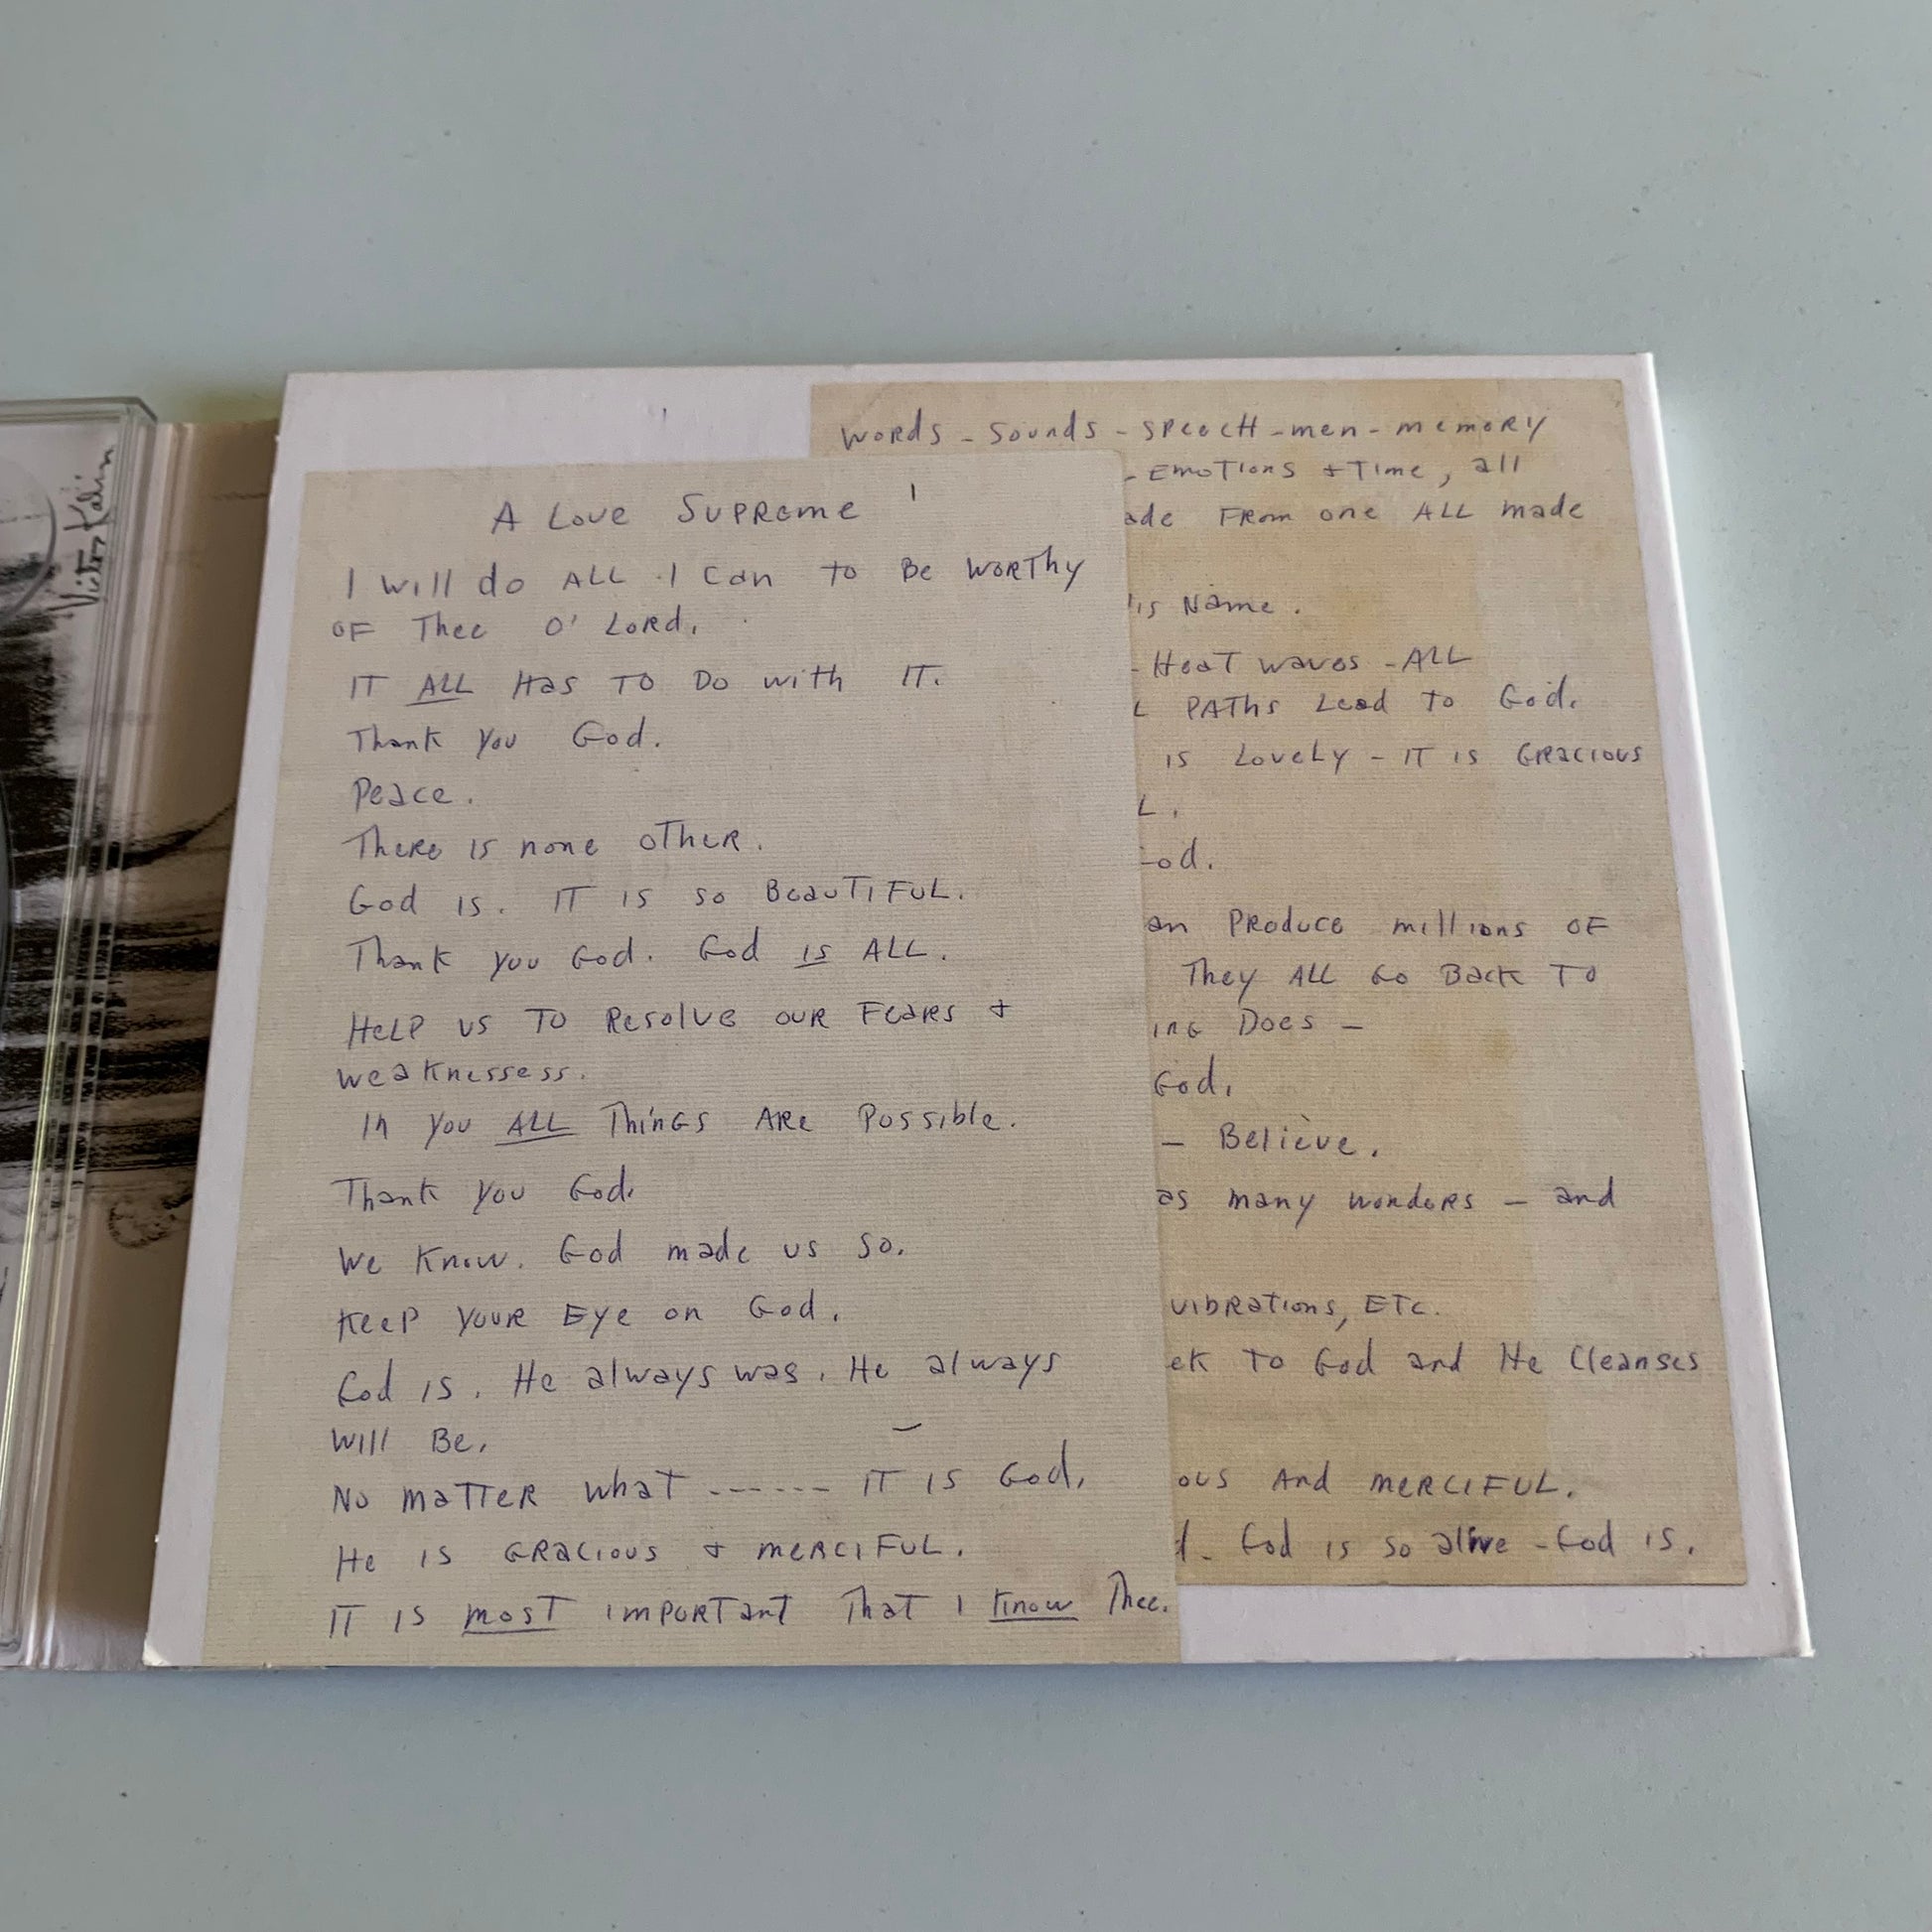 Victor Kalin
A Love Supreme 1
I will do ALL I can to Be Worthy
of Thee O' Lord.
IT ALL Has To Do with IT.
Thank You God.
Peace.
There is none other.
God is. IT is so Beautiful.
Thank you God. God is ALL.
Help us To Resolve our Fears +
weaknessess.
In you ALL Things Are Possible.
Thank you God.
We know. God made us so.
Keep your Eye on God.
God is. He always was. He always
will Be.
No matter what ------ IT is God.
He is Gracious + merciful.
IT is most important That I know Thee.
words - Sounds - Speech - men - memory
- Emotions + Time, all
ade From one ALL made
is Name.
- Heat waves - ALL
L PATHS Lead To God.
is Lovely - IT is Gracious
L.
od.
an Produce millions of
They ALL Go Back To
ing Does -
God.
- Believe.
as many wonders - and
vibrations, ETC.
ek To God and He Cleanses
ous And merciful.
d. God is so alive - God is.